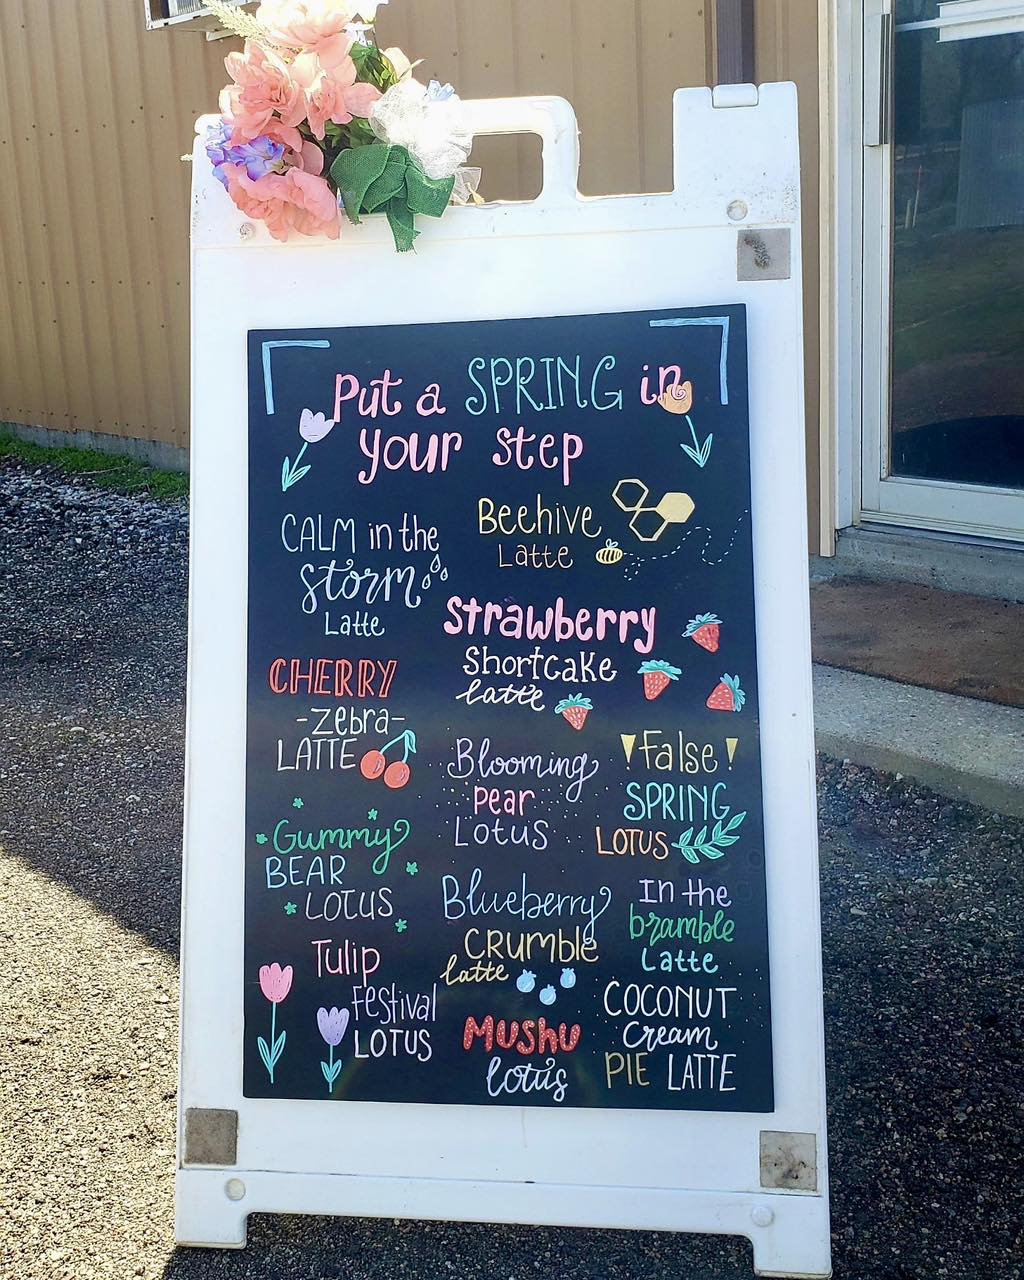 Put a SPRING in
your step
CALM in the
Storm
Latte
Beehive
Latte
Strawberry
Shortcake
latte
CHERRY
-Zebra-
LATTE
Blooming
Pear
LOTUS
!False!
SPRING
LOTUS
Gummy
BEAR
LOTUS
Blueberry
CRUMBLE
latte
In the
bramble
Latte
Tulip
Festival
LOTUS
MUSHU
lotus
COCONUT
Cream
PIE LATTE